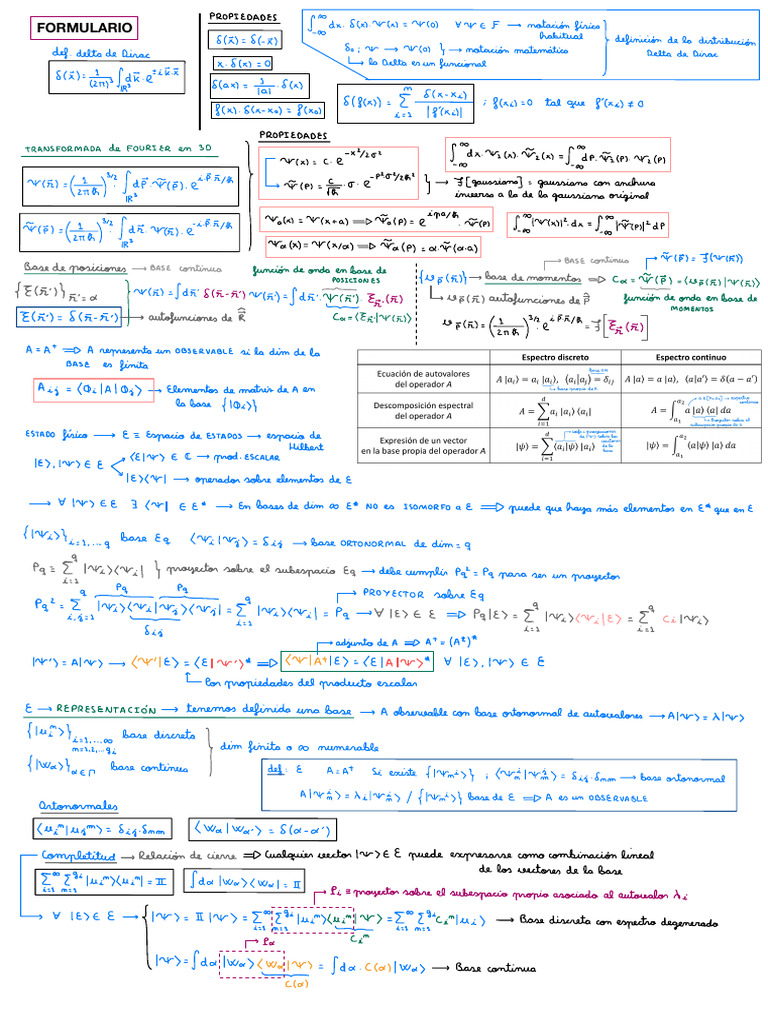 FORMULARIO
def. delta de Dirac
δ(x⃗) = 1/(2π)³ ∫_{IR³} dk⃗ · e^{±i k⃗·x⃗}
PROPIEDADES
δ(x⃗) = δ(-x⃗)
x · δ(x) = 0
δ(ax) = 1/|a| · δ(x)
f(x) · δ(x-x₀) = f(x₀)
∫_{-∞}^{∞} dx · δ(x) · Ψ(x) = Ψ(0) ∀Ψ ∈ F → notación física habitual
δ₀ ; Ψ → Ψ(0) } → notación matemática
↳ la Delta es un funcional
definición de la distribución Delta de Dirac
δ(f(x)) = Σ_{i=1}^{m} δ(x-x_i)/|f'(x_i)| ; f(x_i)=0 tal que f'(x_i) ≠ 0
TRANSFORMADA de FOURIER en 3D
Ψ(r⃗) = (1/2πħ)^{3/2} · ∫_{IR³} dp⃗ · Ψ̃(p⃗) · e^{i p⃗·r⃗/ħ}
Ψ̃(p⃗) = (1/2πħ)^{3/2} · ∫_{IR³} dr⃗ · Ψ(r⃗) · e^{-i p⃗·r⃗/ħ}
PROPIEDADES
Ψ(x) = C · e^{-x²/2σ²}
Ψ̃(p) = C/√ħ · σ · e^{-p²σ²/2ħ²}
→ F[gaussiana] = gaussiana con anchura inversa a la de la gaussiana original
∫_{-∞}^{∞} dx · Ψ₁(x) · Ψ̃₂(x) = ∫_{-∞}^{∞} dp · Ψ̃₁(p) · Ψ₂(p)
Ψ₀(x) = Ψ(x+a) ⟹ Ψ̃₀(p) = e^{ipa/ħ} · Ψ̃(p)
Ψ_α(x) = Ψ(x/α) ⟹ Ψ̃_α(p) = α · Ψ̃(α·a)
∫_{-∞}^{∞} |Ψ(x)|² · dx = ∫_{-∞}^{∞} |Ψ̃(p)|² dp
Base de posiciones → BASE continua
{ξ(r⃗')}_{r⃗'=α}
ξ(r⃗') = δ(r⃗-r⃗') → autofunciones de R̂
función de onda en base de POSICIONES
Ψ(r⃗) = ∫dr⃗' δ(r⃗-r⃗') Ψ(r⃗') = ∫dr⃗' · Ψ(r⃗') · ξ_{r⃗'}(r⃗)
C_α = ⟨ξ_{r⃗'}|Ψ(r⃗)⟩
{v_p⃗(r⃗)} → base de momentos ⟹ C_α = Ψ̃(p⃗) = ⟨v_p⃗(r⃗)|Ψ(r⃗)⟩
BASE continua
Ψ̃(p⃗) = F(Ψ(r⃗))
↳ v_p⃗(r⃗) autofunciones de P̂
función de onda en base de MOMENTOS
v_p⃗(r⃗) = (1/2πħ)^{3/2} · e^{i p⃗·r⃗/ħ} = F[ξ_{r⃗'}(r⃗)]
A = A⁺ ⟹ A representa un OBSERVABLE si la dim de la BASE es finita
A_{ij} = ⟨Φ_i|A|Φ_j⟩ → Elementos de matriz de A en la base {|Φ_i⟩}
Espectro discreto Espectro continuo
Ecuación de autovalores del operador A
A |a_i⟩ = a_i |a_i⟩, ⟨a_i|a_j⟩ = δ_ij
base propia de A
A |a⟩ = a |a⟩, ⟨a|a'⟩ = δ(a − a')
Descomposición espectral del operador A
A = Σ_{i=1}^{d} a_i |a_i⟩ ⟨a_i|
A = ∫_{a₁}^{a₂} a |a⟩ ⟨a| da
Expresión de un vector en la base propia del operador A
|ψ⟩ = Σ_{i=1}^{d} ⟨a_i|ψ⟩ |a_i⟩
|ψ⟩ = ∫_{a₁}^{a₂} ⟨a|ψ⟩ |a⟩ da
ESTADO físico → ℰ ≡ Espacio de ESTADOS → espacio de Hilbert
|ξ⟩, |Ψ⟩ ∈ ℰ
⟨ξ|Ψ⟩ ∈ ℂ → prod. ESCALAR
|ξ⟩⟨Ψ| → operador sobre elementos de ℰ
→ ∀ |Ψ⟩ ∈ ℰ ∃ ⟨Ψ| ∈ ℰ* → En bases de dim ∞ ℰ* NO es ISOMORFO a ℰ ⟹ puede que haya más elementos en ℰ* que en ℰ
{|Ψ_i⟩}_{i=1,...q} base ℰq ⟨Ψ_i|Ψ_j⟩ = δ_ij → base ORTONORMAL de dim = q
Pq ≡ Σ_{i=1}^{q} |Ψ_i⟩⟨Ψ_i| } proyector sobre el subespacio ℰq → debe cumplir Pq² = Pq para ser un proyector
Pq² = Σ_{i,j=1}^{q} |Ψ_i⟩⟨Ψ_i|Ψ_j⟩⟨Ψ_j| = Σ_{i=1}^{q} |Ψ_i⟩⟨Ψ_i| = Pq → ∀|ξ⟩ ∈ ℰ ⟹ Pq|ξ⟩ = Σ_{i=1}^{q} |Ψ_i⟩⟨Ψ_i|ξ⟩ = Σ_{i=1}^{q} C_i|Ψ_i⟩
Pq Pq
δ_ij
PROYECTOR sobre ℰq
adjunto de A ⟹ A⁺ = (Aᵗ)*
|Ψ'⟩ = A|Ψ⟩ → ⟨Ψ'|ξ⟩ = ⟨ξ|Ψ'⟩* ⟹ ⟨Ψ|A⁺|ξ⟩ = ⟨ξ|A|Ψ⟩* ∀ |ξ⟩, |Ψ⟩ ∈ ℰ
por propiedades del producto escalar
ℰ → REPRESENTACIÓN → tenemos definida una base → A observable con base ortonormal de autovalores → A|Ψ⟩ = λ|Ψ⟩
{|u_i^m⟩}_{i=1,...∞ m=1,2,..g_i} base discreta
{|w_α⟩}_{α∈Γ} base continua
dim finita o ∞ numerable
def: ℰ A=A⁺ Si existe {|Ψ_m^i⟩} ; ⟨Ψ_n^i|Ψ_m^j⟩ = δ_ij·δ_nm → base ortonormal
A|Ψ_m^i⟩ = λ_i|Ψ_m^i⟩ / {|Ψ_m^i⟩} base de ℰ ⟹ A es un OBSERVABLE
Ortonormales
⟨u_i^n|u_j^m⟩ = δ_ij·δ_nm
⟨w_α|w_α'⟩ = δ(α-α')
Completitud → Relación de cierre ⟹ Cualquier vector |Ψ⟩ ∈ ℰ puede expresarse como combinación lineal de los vectores de la base
Σ_{i=1}^{∞} Σ_{m=1}^{g_i} |u_i^m⟩⟨u_i^m| = 𝕀
∫dα |w_α⟩⟨w_α| = 𝕀
P_i ≡ proyector sobre el subespacio propio asociado al autovalor λ_i
∀ |ξ⟩ ∈ ℰ → |Ψ⟩ = 𝕀 |Ψ⟩ = Σ_{i=1}^{∞} Σ_{m=1}^{g_i} |u_i^m⟩⟨u_i^m|Ψ⟩ = Σ_{i=1}^{∞} Σ_{m=1}^{g_i} C_i^m |u_i⟩ → Base discreta con espectro degenerado
C_i^m
P_α
|Ψ⟩ = ∫dα |w_α⟩⟨w_α|Ψ⟩ = ∫dα · C(α)|w_α⟩ → Base continua
C(α)